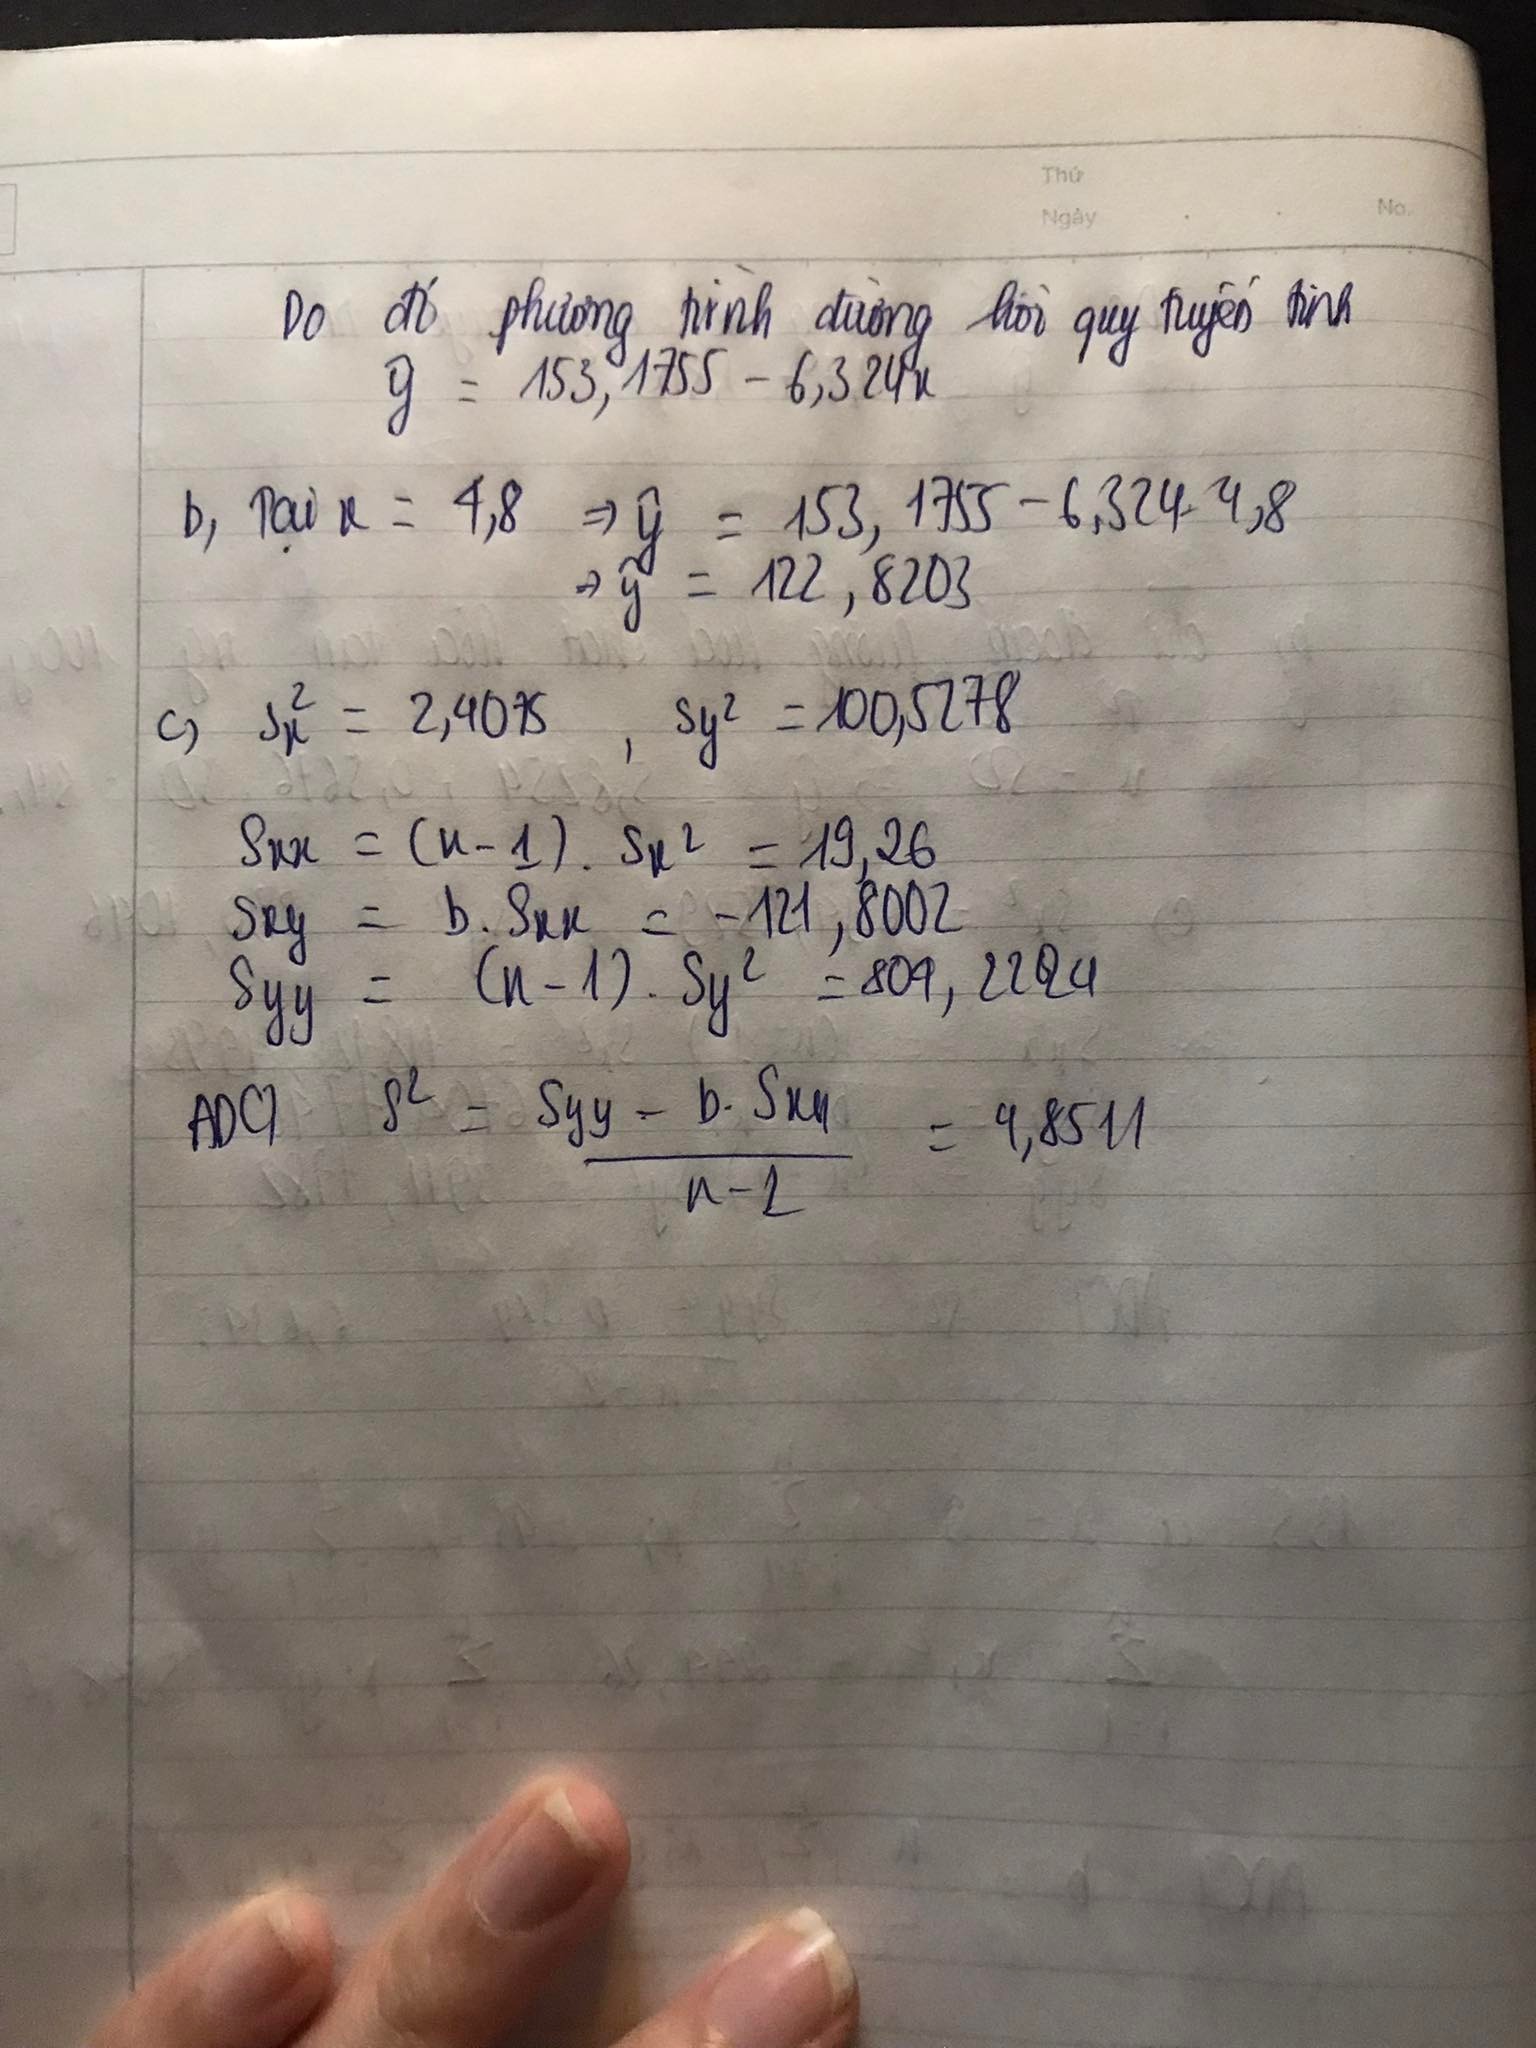 Thứ
Ngày . . No.
Do đó phương trình đường hồi quy tuyến tính
ŷ = 153,1755 - 6,324x
b, Tại x = 4,8 => ŷ = 153,1755 - 6,324.4,8
=> ŷ = 122,8203
c, Sx² = 2,4075 , Sy² = 100,5278
Sxx = (n-1). Sx² = 19,26
Sxy = b. Sxx = -121,8002
Syy = (n-1). Sy² = 804,2224
ADCT S² = Syy - b. Sxy = 4,8511
n-2